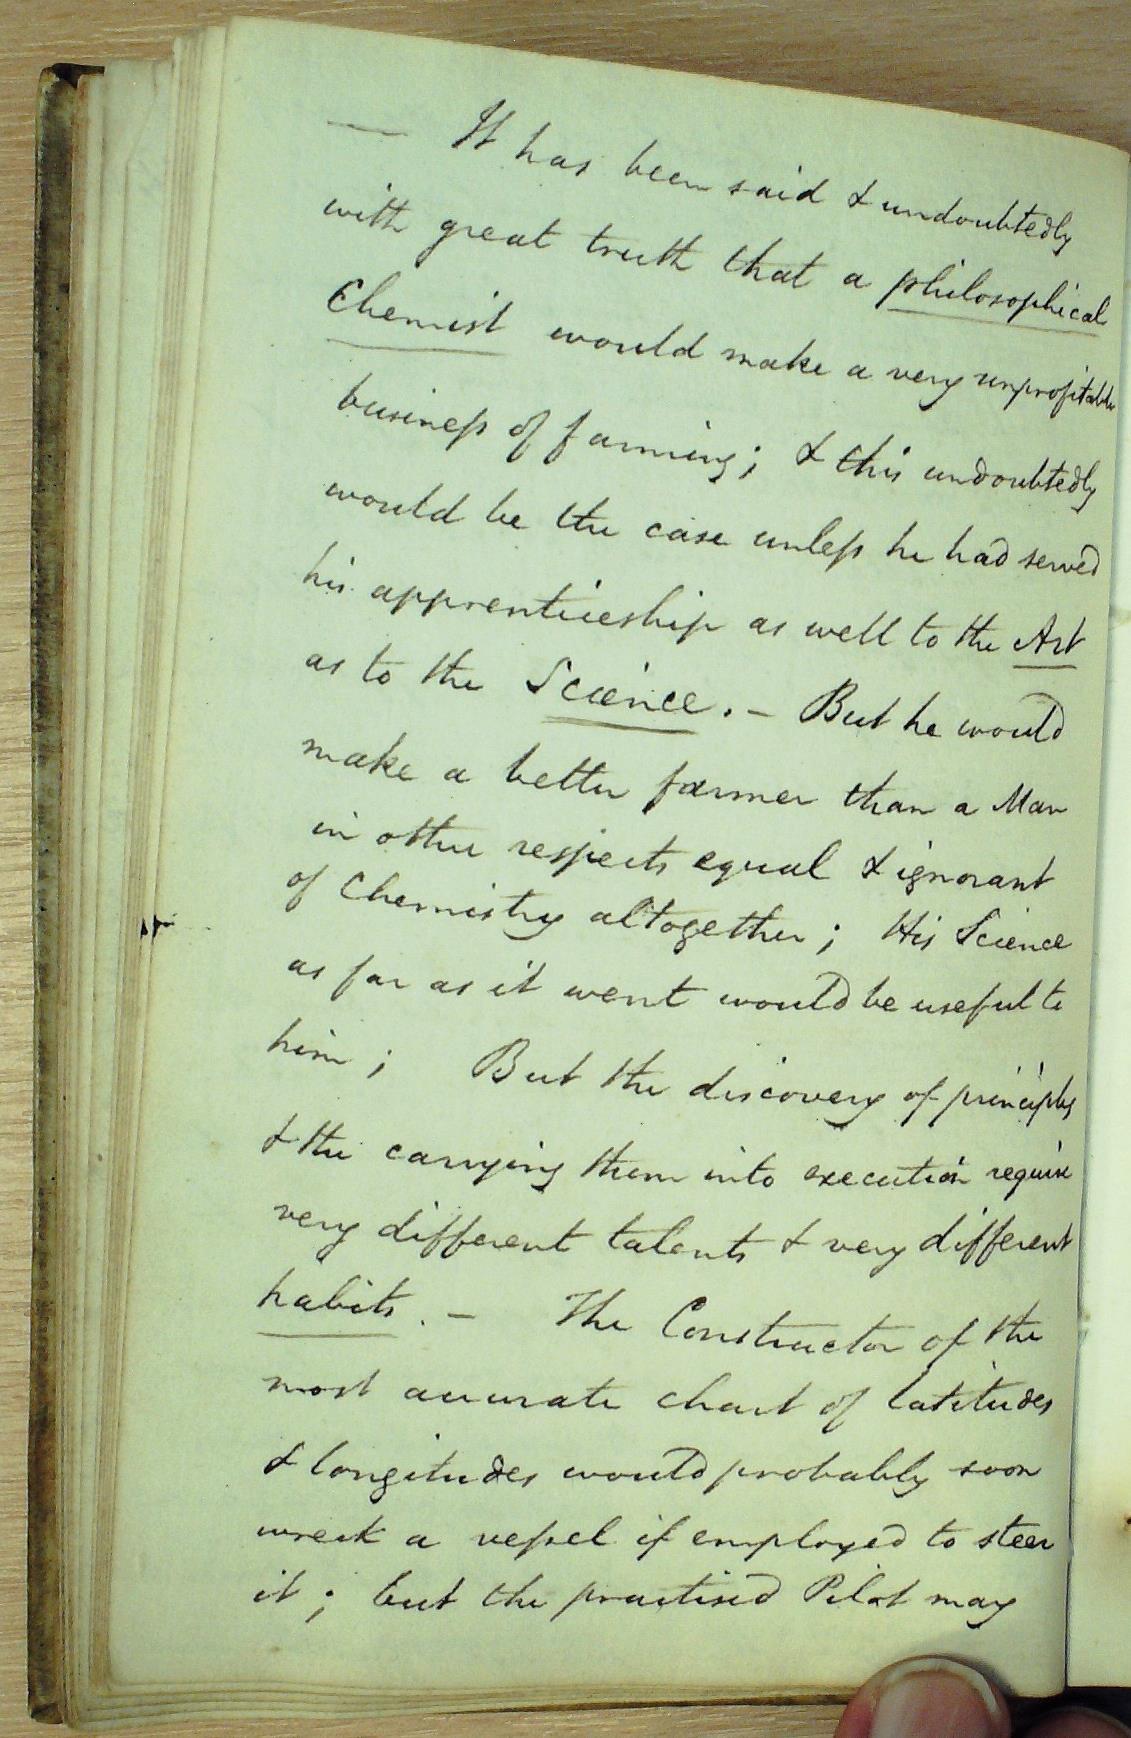 — It has been said & undoubtedly
with great truth that a philosophical
Chemist would make a very unprofitable
business of farming; & this undoubtedly
would be the case unless he had served
his apprenticeship as well to the Art
as to the Science. – But he would
make a better farmer than a Man
in other respects equal & ignorant
of Chemistry altogether; His Science
as far as it went would be useful to
him; But the discovery of principles
& the carrying them into execution require
very different talents & very different
habits. – The Constructor of the
most accurate chart of latitudes
& longitudes would probably soon
wreck a vessel if employed to steer
it; but the practised Pilot may